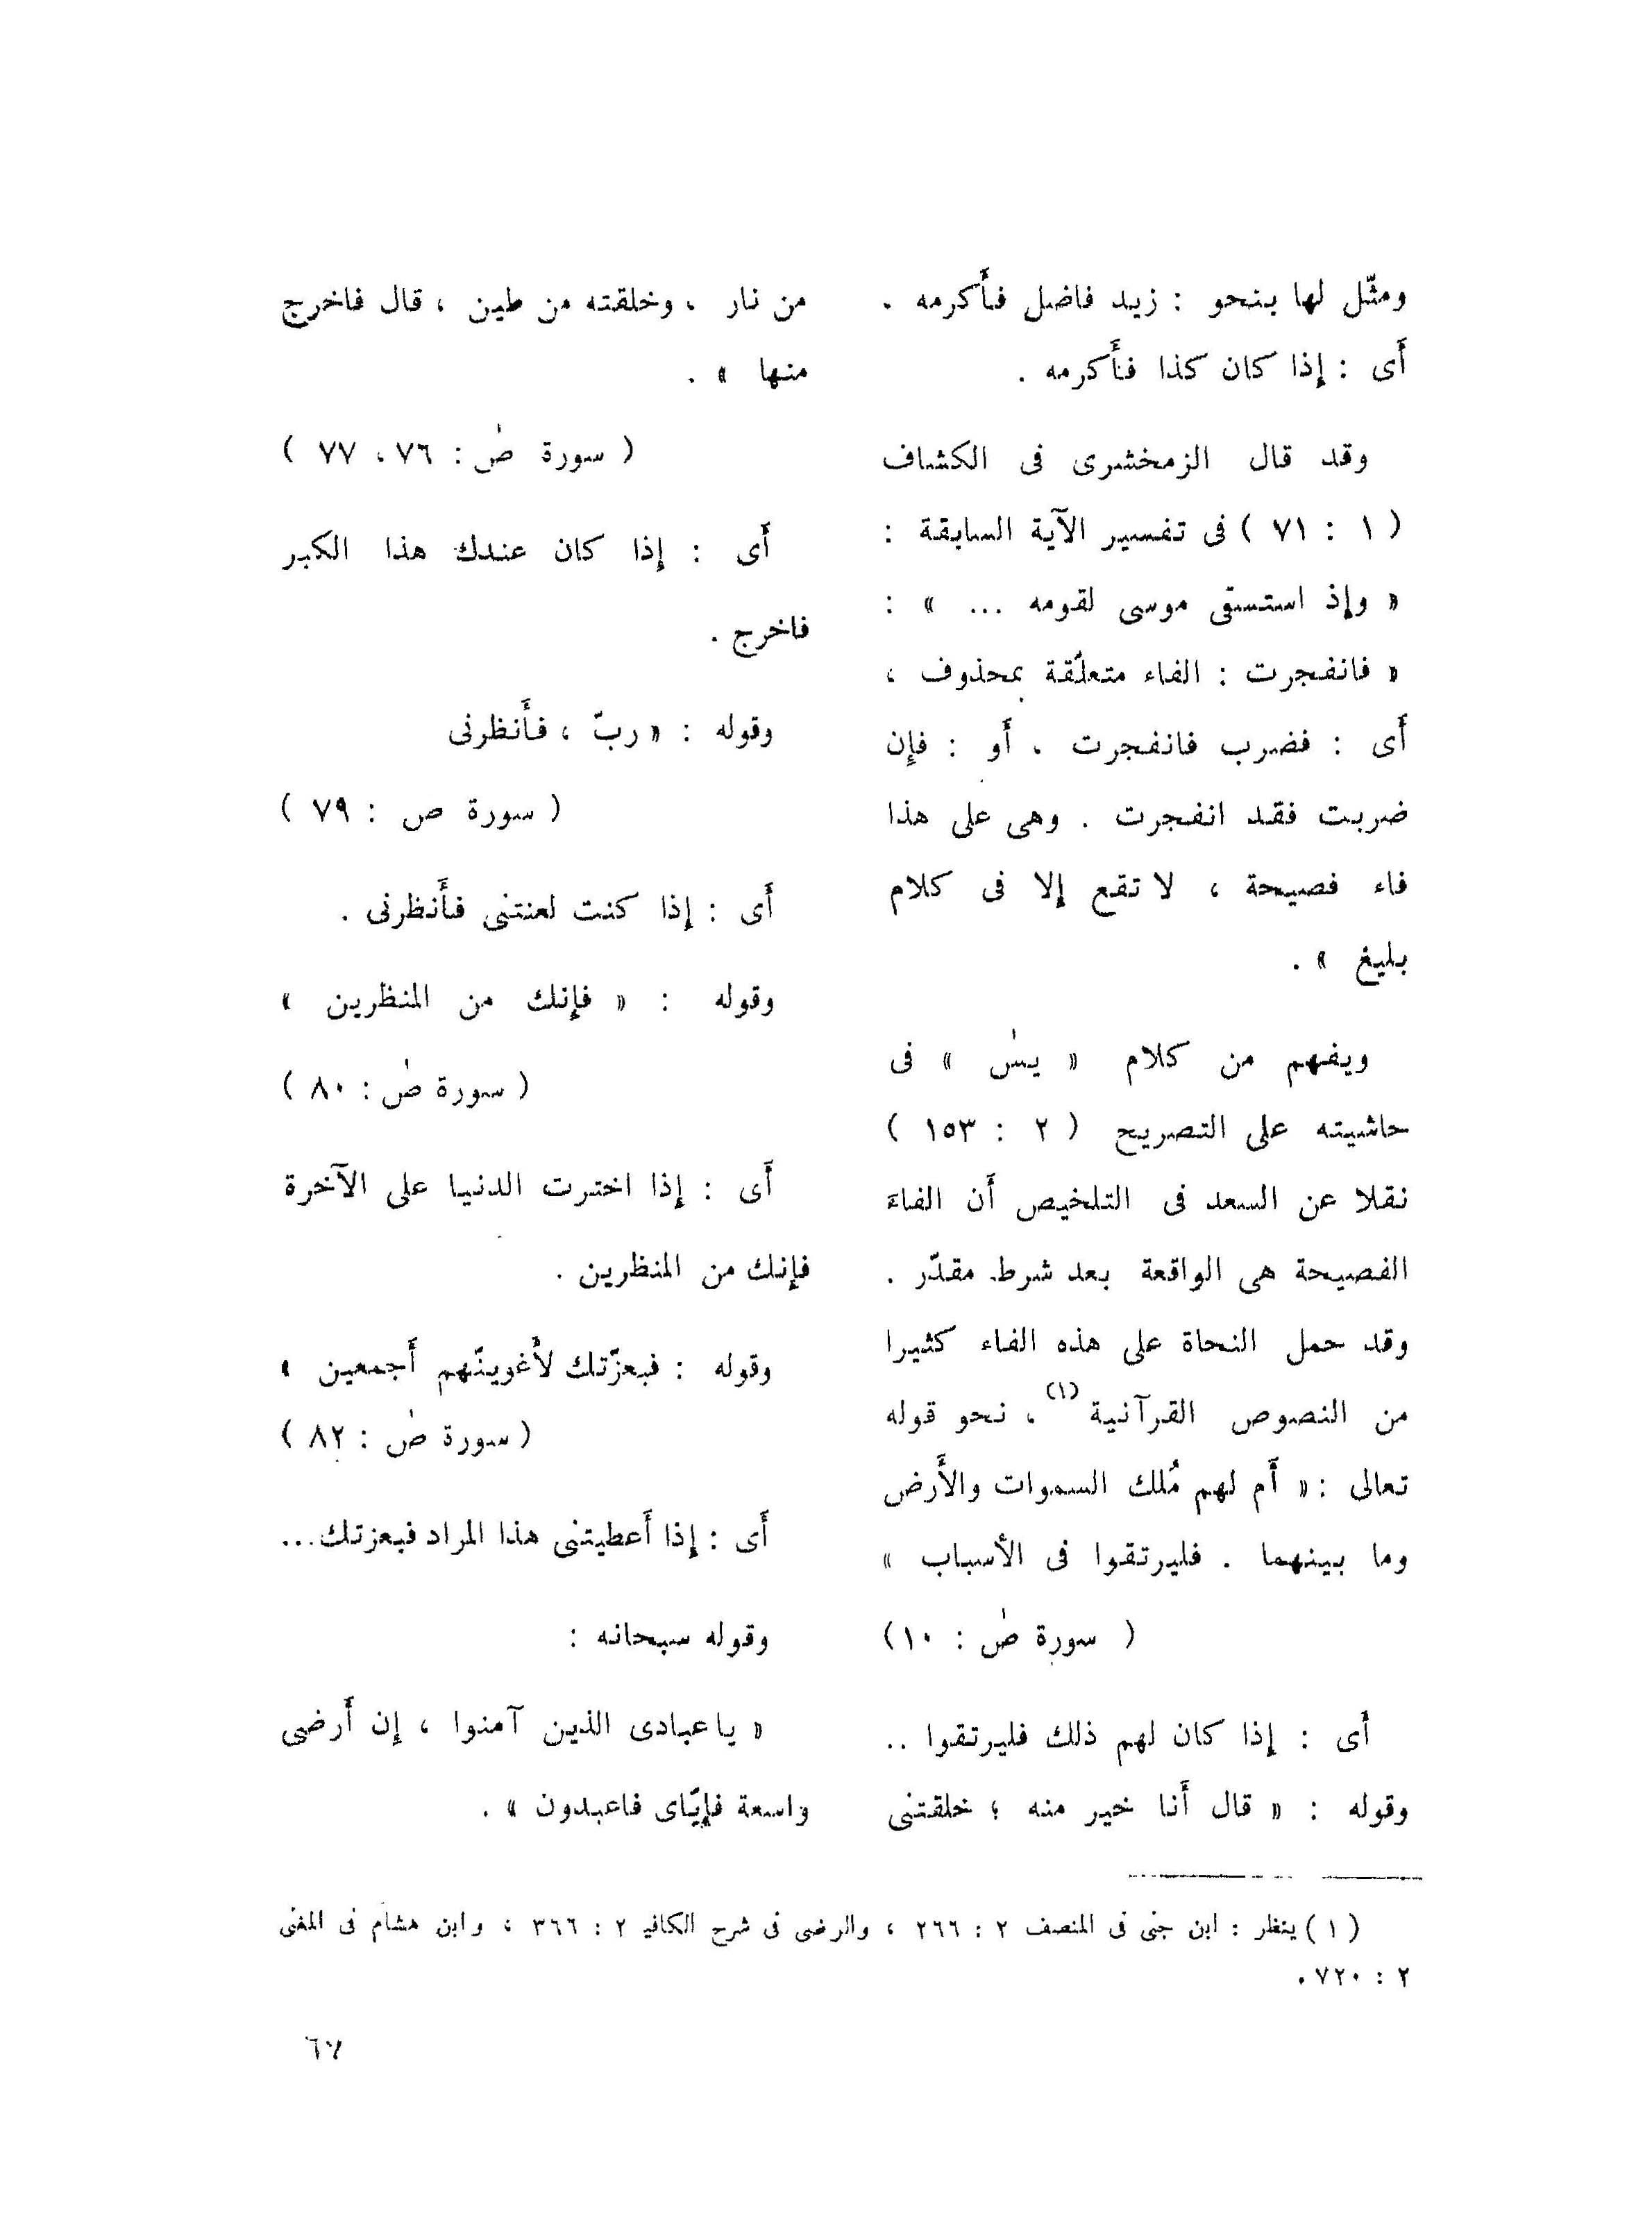 ومثّل لها بنحو : زيد فاضل فأَكرمه .
أَى : إذا كان كذا فأَكرمه .
وقد قال الزمخشرى فى الكشاف
( ١ : ٧١ ) فى تفسير الآية السابقة :
« وإذ استسقى موسى لقومه ... » :
« فانفجرت : الفاء متعلّقة بمحذوف ،
أَى : فضرب فانفجرت ، أَو : فإن
ضربت فقد انفجرت . وهى على هذا
فاء فصيحة ، لا تقع إلا فى كلام
بليغ » .
ويفهم من كلام « يسٰ » فى
حاشيته على التصريح ( ٢ : ١٥٣ )
نقلا عن السعد فى التلخيص أَن الفاءَ
الفصيحة هى الواقعة بعد شرط مقدّر .
وقد حمل النحاة على هذه الفاء كثيرا
من النصوص القرآنية (١) ، نحو قوله
تعالى : « أَم لهم مُلك السموات والأَرض
وما بينهما . فليرتقوا فى الأسباب »
( سورة صٰ : ١٠)
أَى : إذا كان لهم ذلك فليرتقوا ..
وقوله : « قال أَنا خير منه ؛ خلقتنى
من نار ، وخلقته من طين ، قال فاخرج
منها » .
( سورة صٰ : ٧٦ ، ٧٧ )
أَى : إذا كان عندك هذا الكبر
فاخرج .
وقوله : « ربّ ، فأَنظرنى
( سورة ص : ٧٩ )
أَى : إذا كنت لعنتنى فأَنظرنى .
وقوله : « فإنك من المنظرين »
( سورة صٰ : ٨٠ )
أَى : إذا اخترت الدنيا على الآخرة
فإنك من المنظرين .
وقوله : فبعزّتك لأَغوينّهم أَجمعين »
( سورة صٰ : ٨٢ )
أَى : إذا أَعطيتنى هذا المراد فبعزتك...
وقوله سبحانه :
« ياعبادى الذين آمنوا ، إن أَرضى
واسعة فإيّاى فاعبدون » .
( ١ ) ينظر : ابن جنى فى المنصف ٢ : ٢٦٦ ، والرضى فى شرح الكافيـ ٢ : ٣٦٦ ، وابن هشام فى المغنى
٢ : ٧٢٠ .
٦٧